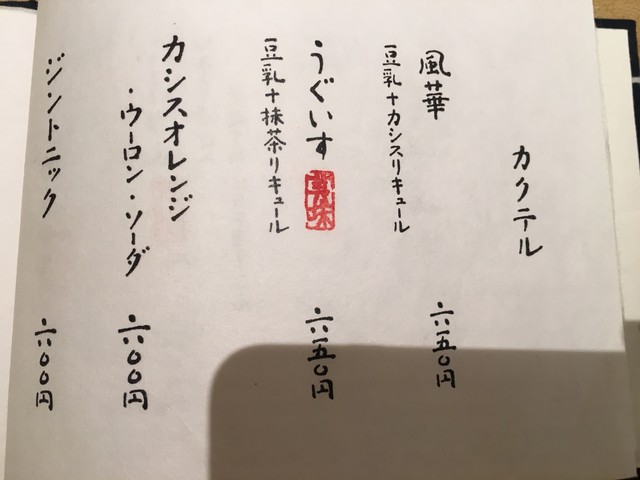 カクテル
風華
豆乳+カシスリキュール
六五〇円
うぐいす
豆乳+抹茶リキュール
六五〇円
カシスオレンジ
・ウーロン・ソーダ
六〇〇円
ジントニック
六〇〇円